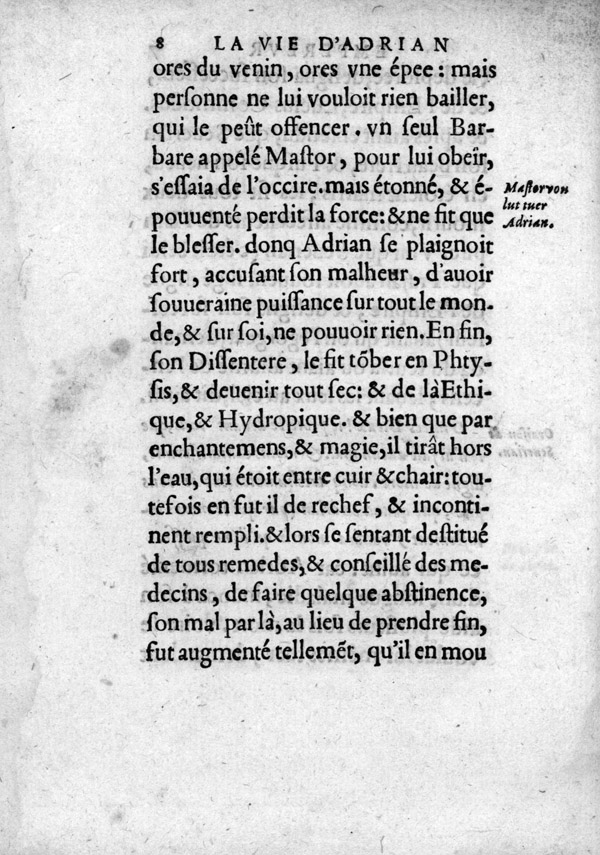 8 LA VIE D'ADRIAN
ores du venin, ores vne épee : mais
perſonne ne lui vouloit rien bailler,
qui le peût offencer. vn ſeul Bar-
bare appelé Maſtor, pour lui obeîr,
s'eſſaia de l'occire.mais étonné, & é-
pouuenté perdit la force: & ne fit que
le bleſſer. donq Adrian ſe plaignoit
fort, accuſant ſon malheur, d'auoir
ſouueraine puiſſance ſur tout le mon-
de,& ſur ſoi,ne pouuoir rien.En fin,
ſon Diſſentere, le fit tõber en Phty-
ſis,& deuenir tout ſec: & de là Ethi-
que,& Hydropique. & bien que par
enchantemens,& magie,il tirât hors
l'eau,qui étoit entre cuir & chair:tou-
tefois en fut il de rechef, & inconti-
nent rempli.& lors ſe ſentant deſtitué
de tous remedes,& conſeillé des me-
decins, de faire quelque abſtinence,
ſon mal par là,au lieu de prendre fin,
fut augmenté tellemẽt, qu'il en mou
Maſtor von
lut tuer
Adrian.